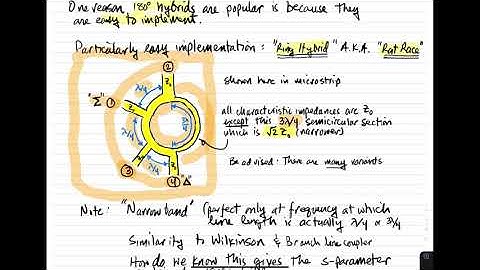 One reason 180° hybrids are popular is because they
are easy to implement.
Particularly easy implementation: "Ring Hybrid" A.K.A. "Rat Race"
②
shown here in microstrip
"Σ" ①
λ/4
Z₀
all characteristic impedances are Z₀
except this 3λ/4 semicircular section
which is √2 Z₀ (narrower)
λ/4
λ/4
③
④ "Δ"
Be advised: There are many variants
Note: "Narrowband" (perfect only at frequency at which
line length is actually λ/4 or 3λ/4
Similarity to Wilkinson & Branch line coupler
How do we know this gives the s-parameter